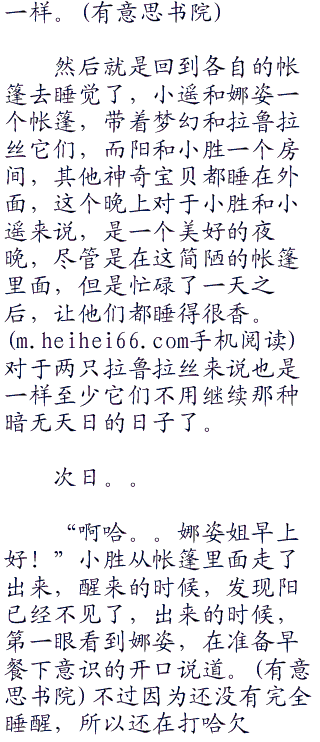 一样。(有意思书院)
然后就是回到各自的帐
篷去睡觉了，小遥和娜姿一
个帐篷，带着梦幻和拉鲁拉
丝它们，而阳和小胜一个房
间，其他神奇宝贝都睡在外
面，这个晚上对于小胜和小
遥来说，是一个美好的夜
晚，尽管是在这简陋的帐篷
里面，但是忙碌了一天之
后，让他们都睡得很香。
(m.heihei66.com手机阅读)
对于两只拉鲁拉丝来说也是
一样至少它们不用继续那种
暗无天日的日子了。
次日。。
“啊哈。。娜姿姐早上
好！”小胜从帐篷里面走了
出来，醒来的时候，发现阳
已经不见了，出来的时候，
第一眼看到娜姿，在准备早
餐下意识的开口说道。(有意
思书院)不过因为还没有完全
睡醒，所以还在打哈欠